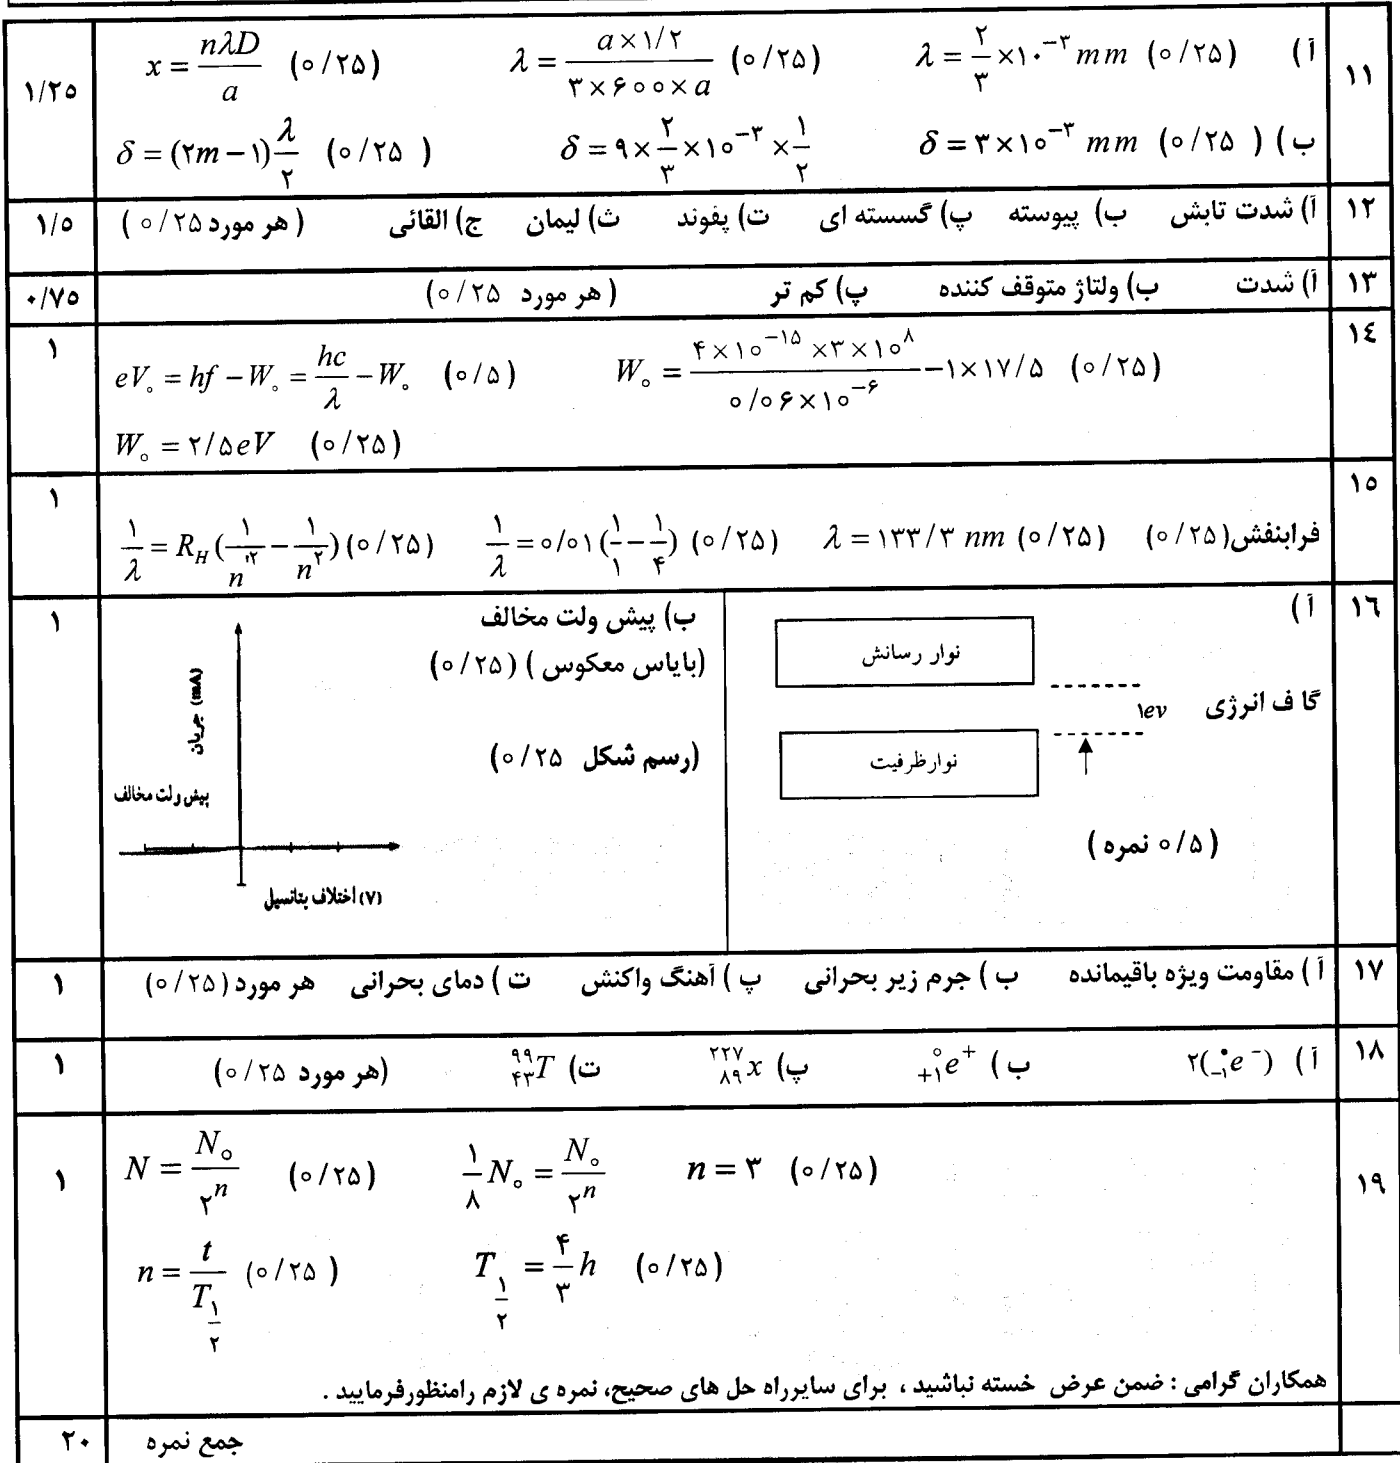 ۱۱ آ) x = nλD / a (۰/۲۵) λ = a×۱/۲ / ۳×۶۰۰×a (۰/۲۵) λ = ۲/۳ ×۱۰^-۳ mm (۰/۲۵) ۱/۲۵
ب) δ = (۲m−۱) λ/۲ (۰/۲۵) δ = ۹× ۲/۳ ×۱۰^-۳ × ۱/۲ δ = ۳×۱۰^-۳ mm (۰/۲۵)
۱۲ آ) شدت تابش ب) پیوسته پ) گسسته ای ت) پفوند ث) لیمان ج) القائی (هر مورد ۰/۲۵) ۱/۵
۱۳ آ) شدت ب) ولتاژ متوقف کننده پ) کم تر (هر مورد ۰/۲۵) ۰/۷۵
۱۴ eV₀ = hf − W₀ = hc/λ − W₀ (۰/۵) W₀ = ۴×۱۰^-۱۵ ×۳×۱۰^۸ / ۰/۰۶×۱۰^-۶ −۱×۱۷/۵ (۰/۲۵) ۱
W₀ = ۲/۵ eV (۰/۲۵)
۱۵ ۱/λ = R_H (۱/n'^۲ − ۱/n^۲) (۰/۲۵) ۱/λ = ۰/۰۱ (۱/۱ − ۱/۴) (۰/۲۵) λ = ۱۳۳/۳ nm (۰/۲۵) فرابنفش (۰/۲۵) ۱
۱۶ آ) ۱
نوار رسانش
گا ف انرژی ۱ev
نوارظرفیت
(۰/۵ نمره)
ب) پیش ولت مخالف
(بایاس معکوس) (۰/۲۵)
(رسم شکل ۰/۲۵)
جریان (mA)
پیش ولت مخالف
اختلاف پتانسیل (V)
۱۷ آ) مقاومت ویژه باقیمانده ب) جرم زیر بحرانی پ) آهنگ واکنش ت) دمای بحرانی هر مورد (۰/۲۵) ۱
۱۸ آ) ۲(₋₁⁰e⁻) ب) ₊₁⁰e⁺ پ) ²²⁷₈₉x ت) ⁹⁹₄₃T (هر مورد ۰/۲۵) ۱
۱۹ N = N₀/۲^n (۰/۲۵) ۱/۸ N₀ = N₀/۲^n n = ۳ (۰/۲۵) ۱
n = t / T_۱/۲ (۰/۲۵) T_۱/۲ = ۴/۳ h (۰/۲۵)
همکاران گرامی : ضمن عرض خسته نباشید ، برای سایرراه حل های صحیح، نمره ی لازم رامنظورفرمایید .
جمع نمره ۲۰